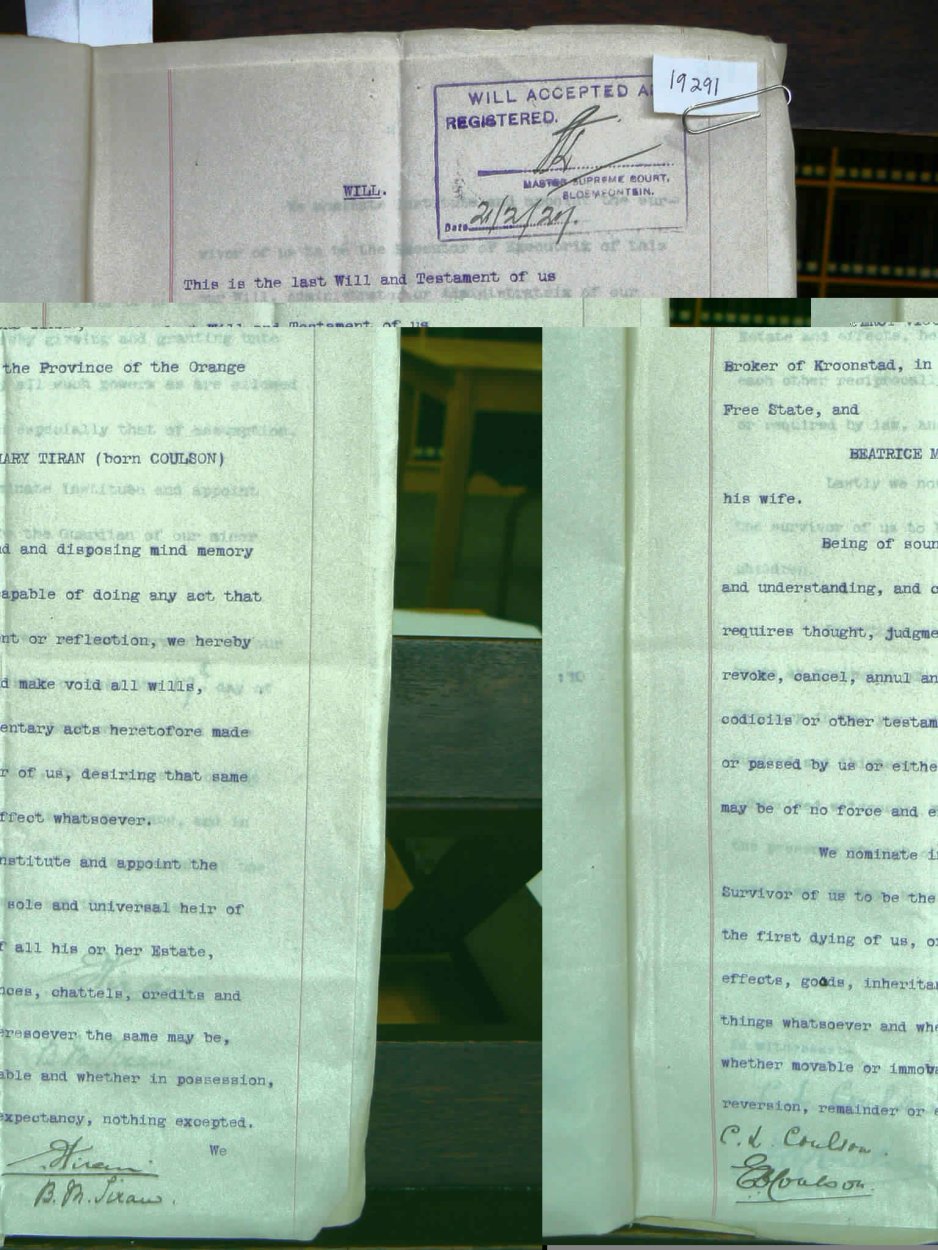 19291
WILL ACCEPTED A
REGISTERED.
MASTER SUPREME COURT,
BLOEMFONTEIN.
Date 21/2/
WILL.
This is the last Will and Testament of us
Will and Testament of us
the Province of the Orange
ARY TIRAN (born COULSON)
d and disposing mind memory
apable of doing any act that
nt or reflection, we hereby
d make void all wills,
entary acts heretofore made
r of us, desiring that same
ffect whatsoever.
nstitute and appoint the
sole and universal heir of
f all his or her Estate,
nces, chattels, credits and
eresoever the same may be,
able and whether in possession,
expectancy, nothing excepted.
We
B. M. Tiran.
Broker of Kroonstad, in
Free State, and
BEATRICE M
his wife.
Being of soun
and understanding, and c
requires thought, judgme
revoke, cancel, annul an
codicils or other testam
or passed by us or eithe
may be of no force and e
We nominate i
Survivor of us to be the
the first dying of us, o
effects, goods, inherita
things whatsoever and whe
whether movable or immov
reversion, remainder or e
C. L. Coulson.
Coulson.